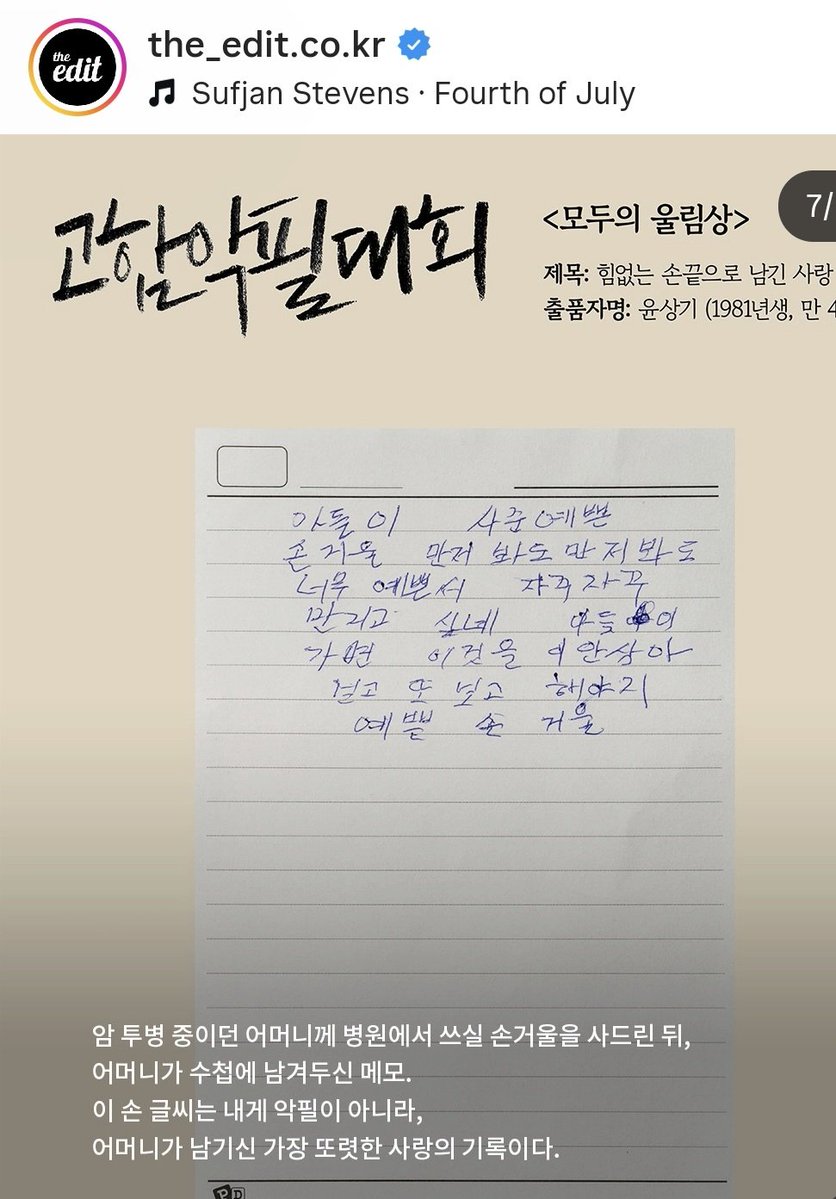 the_edit.co.kr
the edit
Sufjan Stevens · Fourth of July
7/
고함악필대회
<모두의 울림상>
제목: 힘없는 손끝으로 남긴 사랑
출품자명: 윤상기 (1981년생, 만 4
아들이 사준 예쁜
손거울 만저 봐도 만저봐도
너무 예쁜서 자꾸자꾸
만리고 싶네 아들이
가면 이것을 위안삼아
걸고 또 보고 해야지
예쁜 손 거울
암 투병 중이던 어머니께 병원에서 쓰실 손거울을 사드린 뒤,
어머니가 수첩에 남겨두신 메모.
이 손 글씨는 내게 악필이 아니라,
어머니가 남기신 가장 또렷한 사랑의 기록이다.
PD